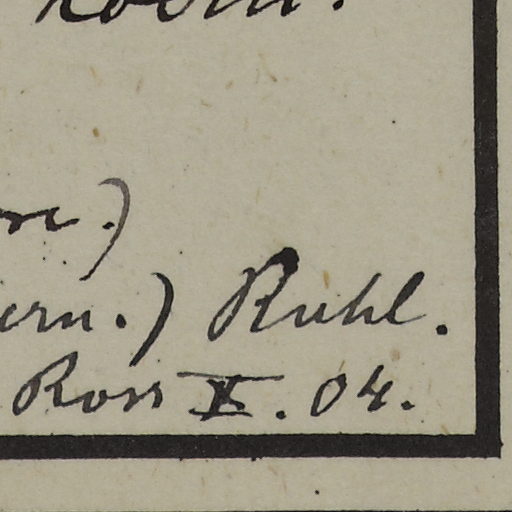 .)
ern.) Ruhl.
Ross X. 04.